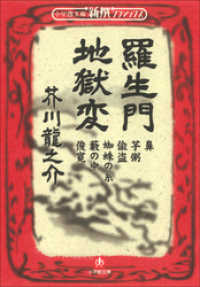 小学館文庫 "新撰"クラシックス
羅生門
地獄変
芥川龍之介
鼻
芋粥
偸盗
蜘蛛の糸
藪の中
俊寛
小学館文庫